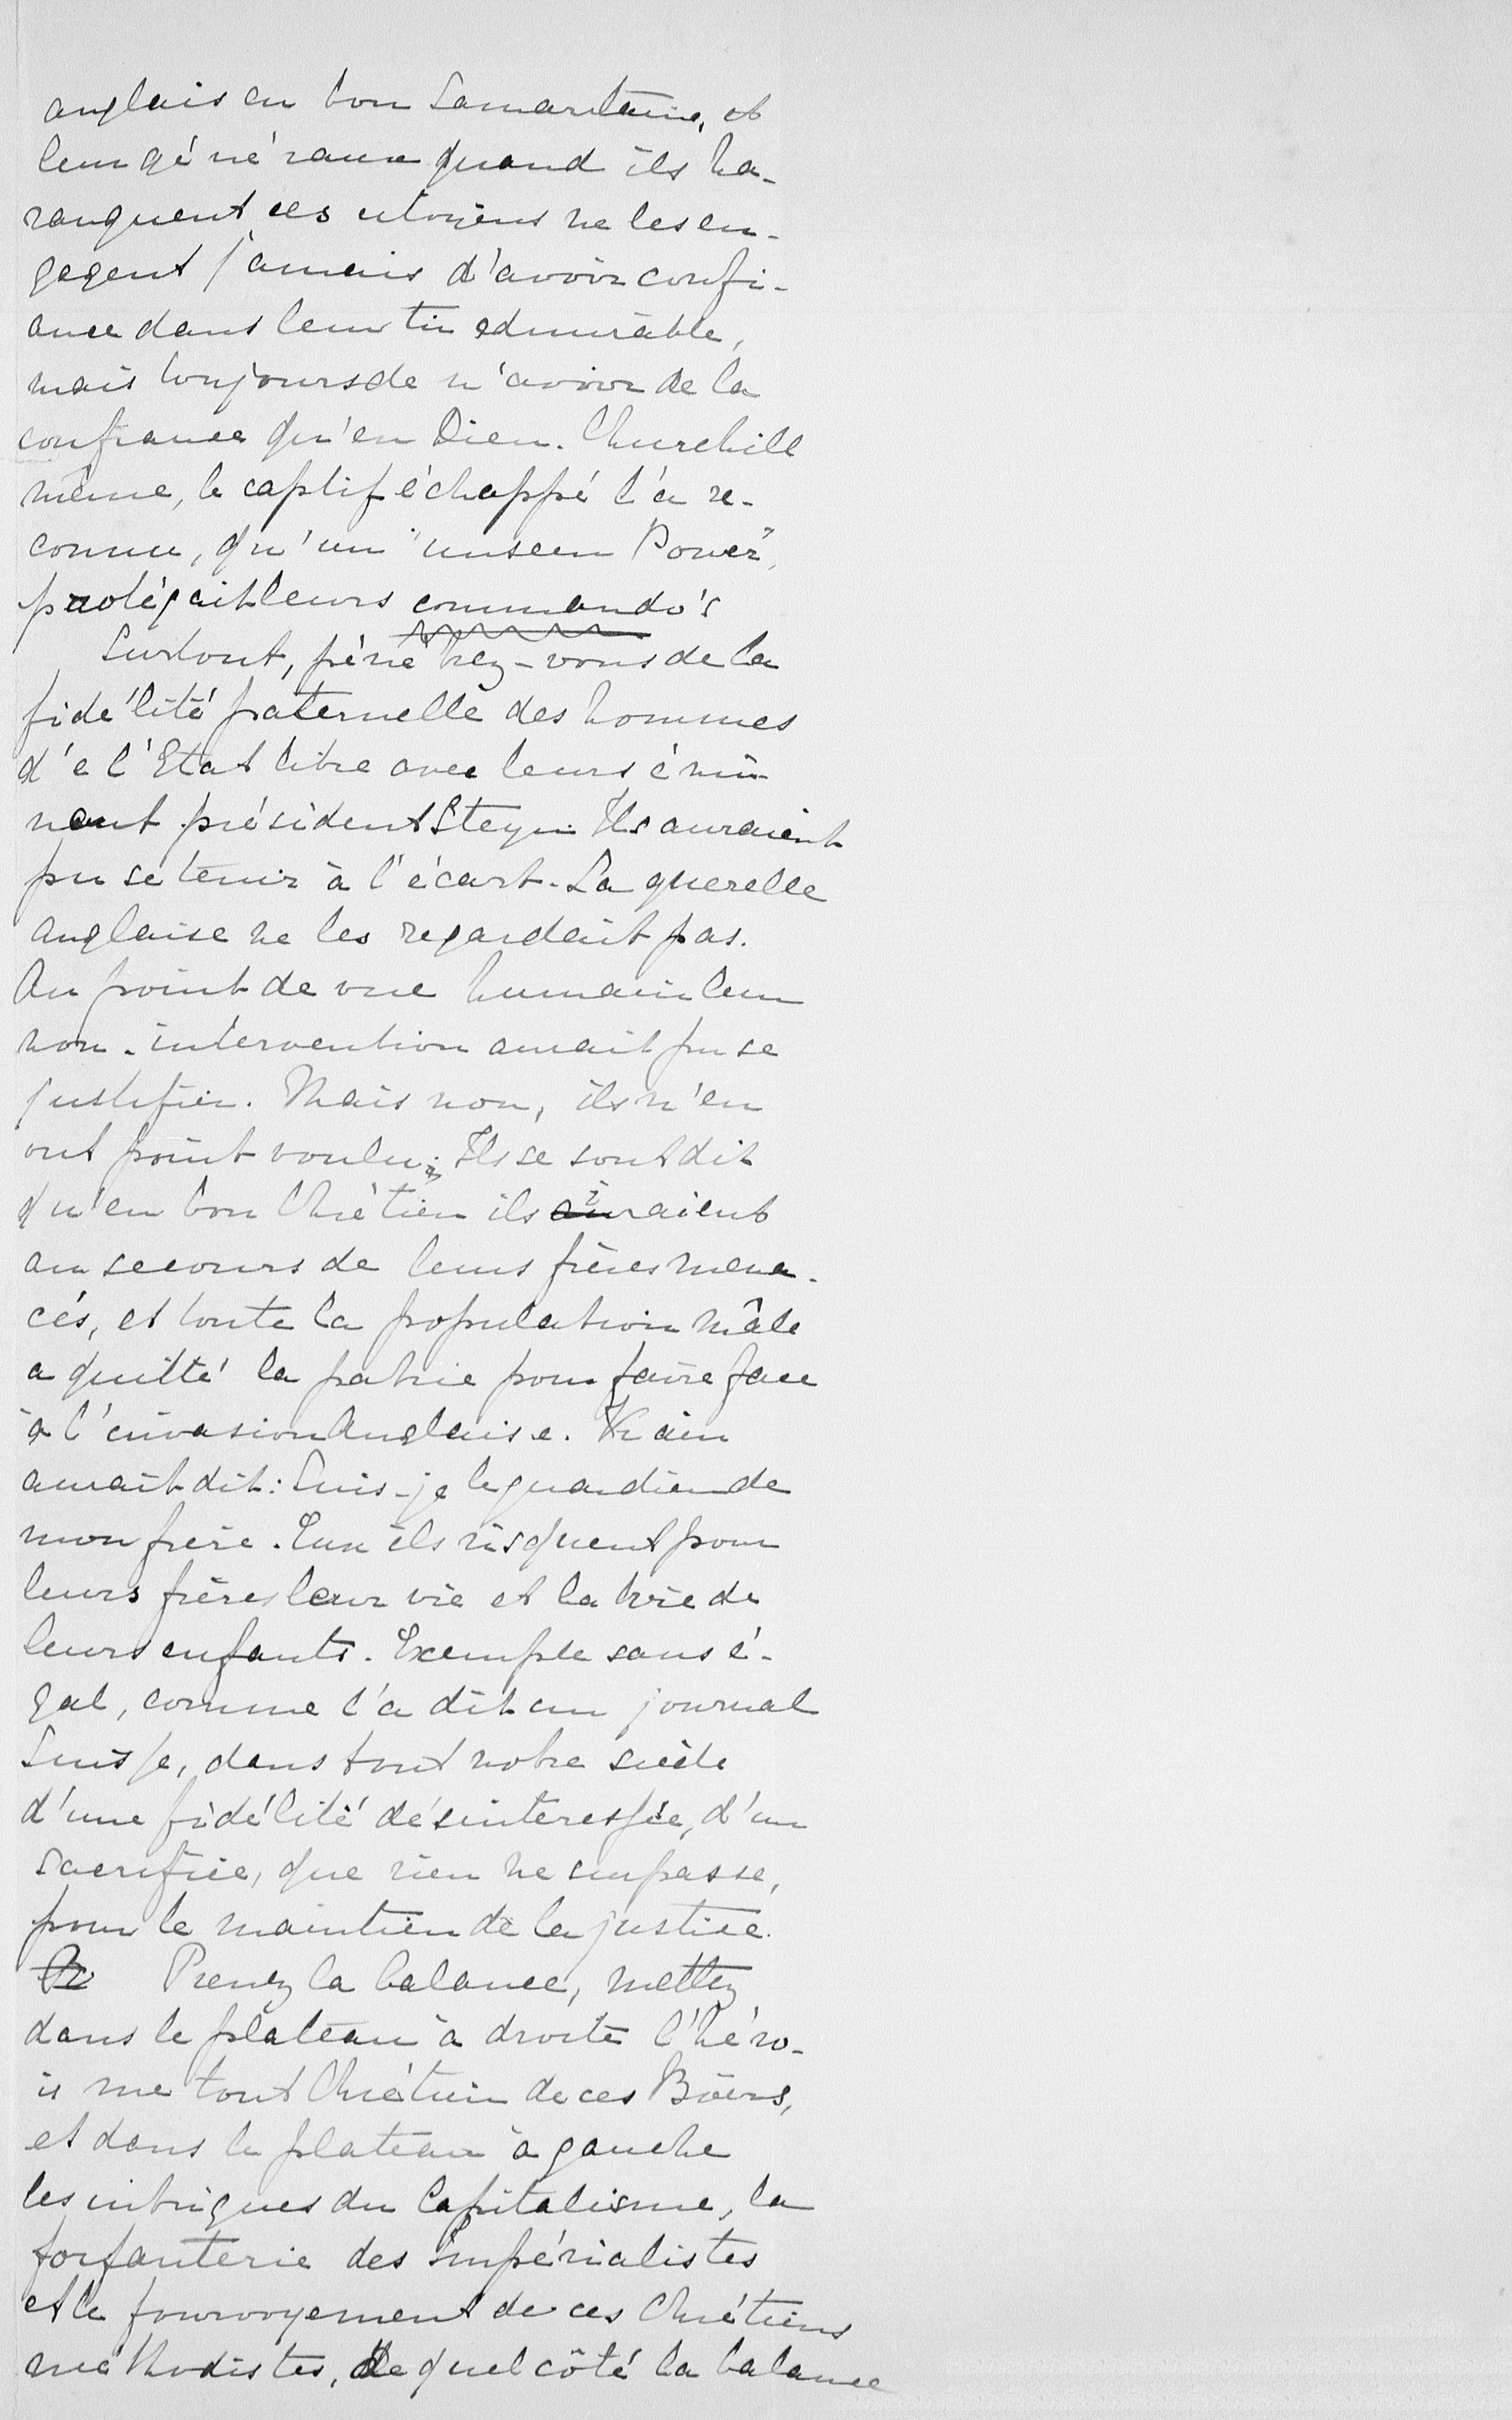 anglais en bon Samaritain, et
leur généraux quand ils ha-
ranguent ces citoyens ne les en-
gagent jamais d'avoir confi-
ance dans leur tir admirable,
mais toujours de n'avoir de la
confiance qu'en Dieu. Churchill
même, le captif échappé l'a re-
connu, qu'un "unseen Power",
protégait leurs commando's
Surtout, pénétrez-vous de la
fidélité fraternelle des hommes
d'e l'Etat libre avec leurs émi-
nent président Steyn. Ils auraient
pu se tenir à l'écart. La querelle
anglaise ne les regardait pas.
Au point de vue humain leur
non-intervention aurait pu se
justifier. Mais non, ils n'en
ont point voulu; Ils se sont dit
qu'en bon Chrétien ils iraient
au secours de leurs frères mena-
cés, et toute la population mâle
a quitté la patrie pour faire face
à l'invasion Anglaise. Kaïn
aurait dit: Suis-je le guardien de
mon frère. Eux ils risquent pour
leurs frères leur vie et la vie de
leurs enfants. Exemple sans é-
gal, comme l'a dit un journal
Suisse, dans tout notre siècle
d'une fidélité désinteressée, d'un
sacrifice, que rien ne surpasse,
pour le maintien de la justice.
Pr Prenez la balance, mettez
dans le plateau à droite l'héro-
isme tout Chrétien de ces Boërs,
et dans le plateau à gauche
les intrigues du Capitalisme, la
forfanterie des impérialistes
et le fourvoyement de ces Chrétiens
méthodistes, de quel côté la balance